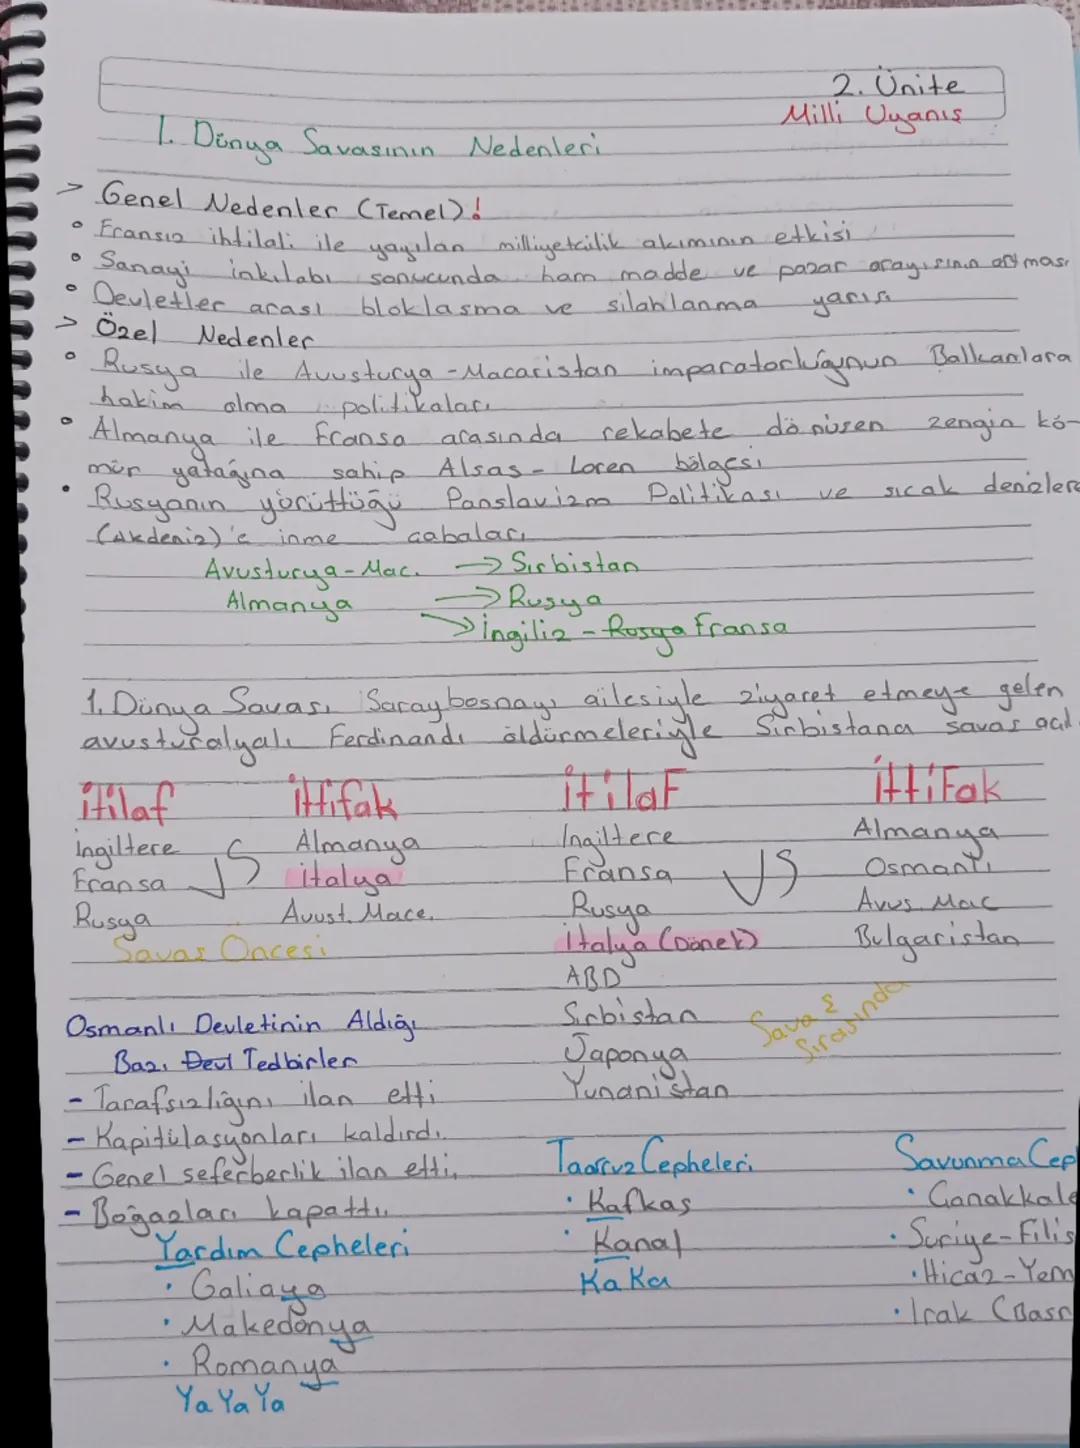 2. Ünite
Milli Uyanış
1. Dünya Savaşının Nedenleri
> Genel Nedenler (Temel)!
• Fransız ihtilali ile yayılan milliyetcilik akımının etkisi
• Sanayi inkılabı sonucunda ham madde ve pazar arayışının artması
• Devletler arası bloklaşma ve silahlanma yarışı
> Özel Nedenler
• Rusya ile Avusturya-Macaristan imparatorluğunun Balkanlara
hakim olma politikaları
• Almanya ile Fransa arasında rekabete dönüşen zengin kö-
mür yatağına sahip Alsas-Loren bölgesi
• Rusyanın yürüttüğü Panslavizm Politikası ve sıcak denizlere
(Akdeniz)'e inme çabaları
Avusturya-Mac. → Sırbistan
Almanya → Rusya
→ İngiliz - Rusya Fransa
1. Dünya Savaşı Saraybosnayı ailesiyle ziyaret etmeye gelen
avusturalyalı Ferdinandı öldürmeleriyle Sırbistana savaş açıl
itilaf ittifak itilaf ittifak
İngiltere Almanya İngiltere Almanya
Fransa VS italya Fransa VS Osmanlı
Rusya Avust. Mace. Rusya Avus. Mac
Savaş Öncesi italya (Döner) Bulgaristan
ABD
Osmanlı Devletinin Aldığı Sırbistan Savaş
Bazı Devl Tedbirler Japonya Sırasında
- Tarafsızlığını ilan etti Yunanistan
- Kapitülasyonları kaldırdı.
- Genel seferberlik ilan etti. Taarruz Cepheleri Savunma Cep
- Boğazları kapattı. • Kafkas • Çanakkale
Yardım Cepheleri • Kanal • Suriye-Filis
• Galiçya KaKa • Hicaz-Yem
• Makedonya • Irak (Basr
• Romanya
Ya Ya Ya